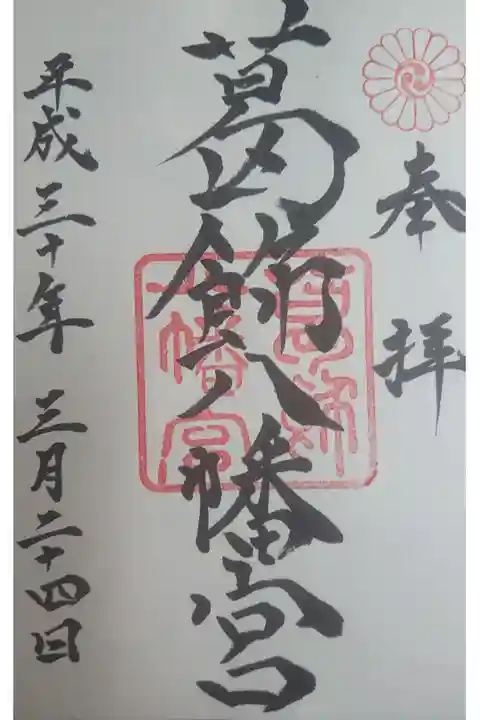 奉拝
葛飾八幡宮
平成三十年 三月二十四日
葛飾
八幡宮